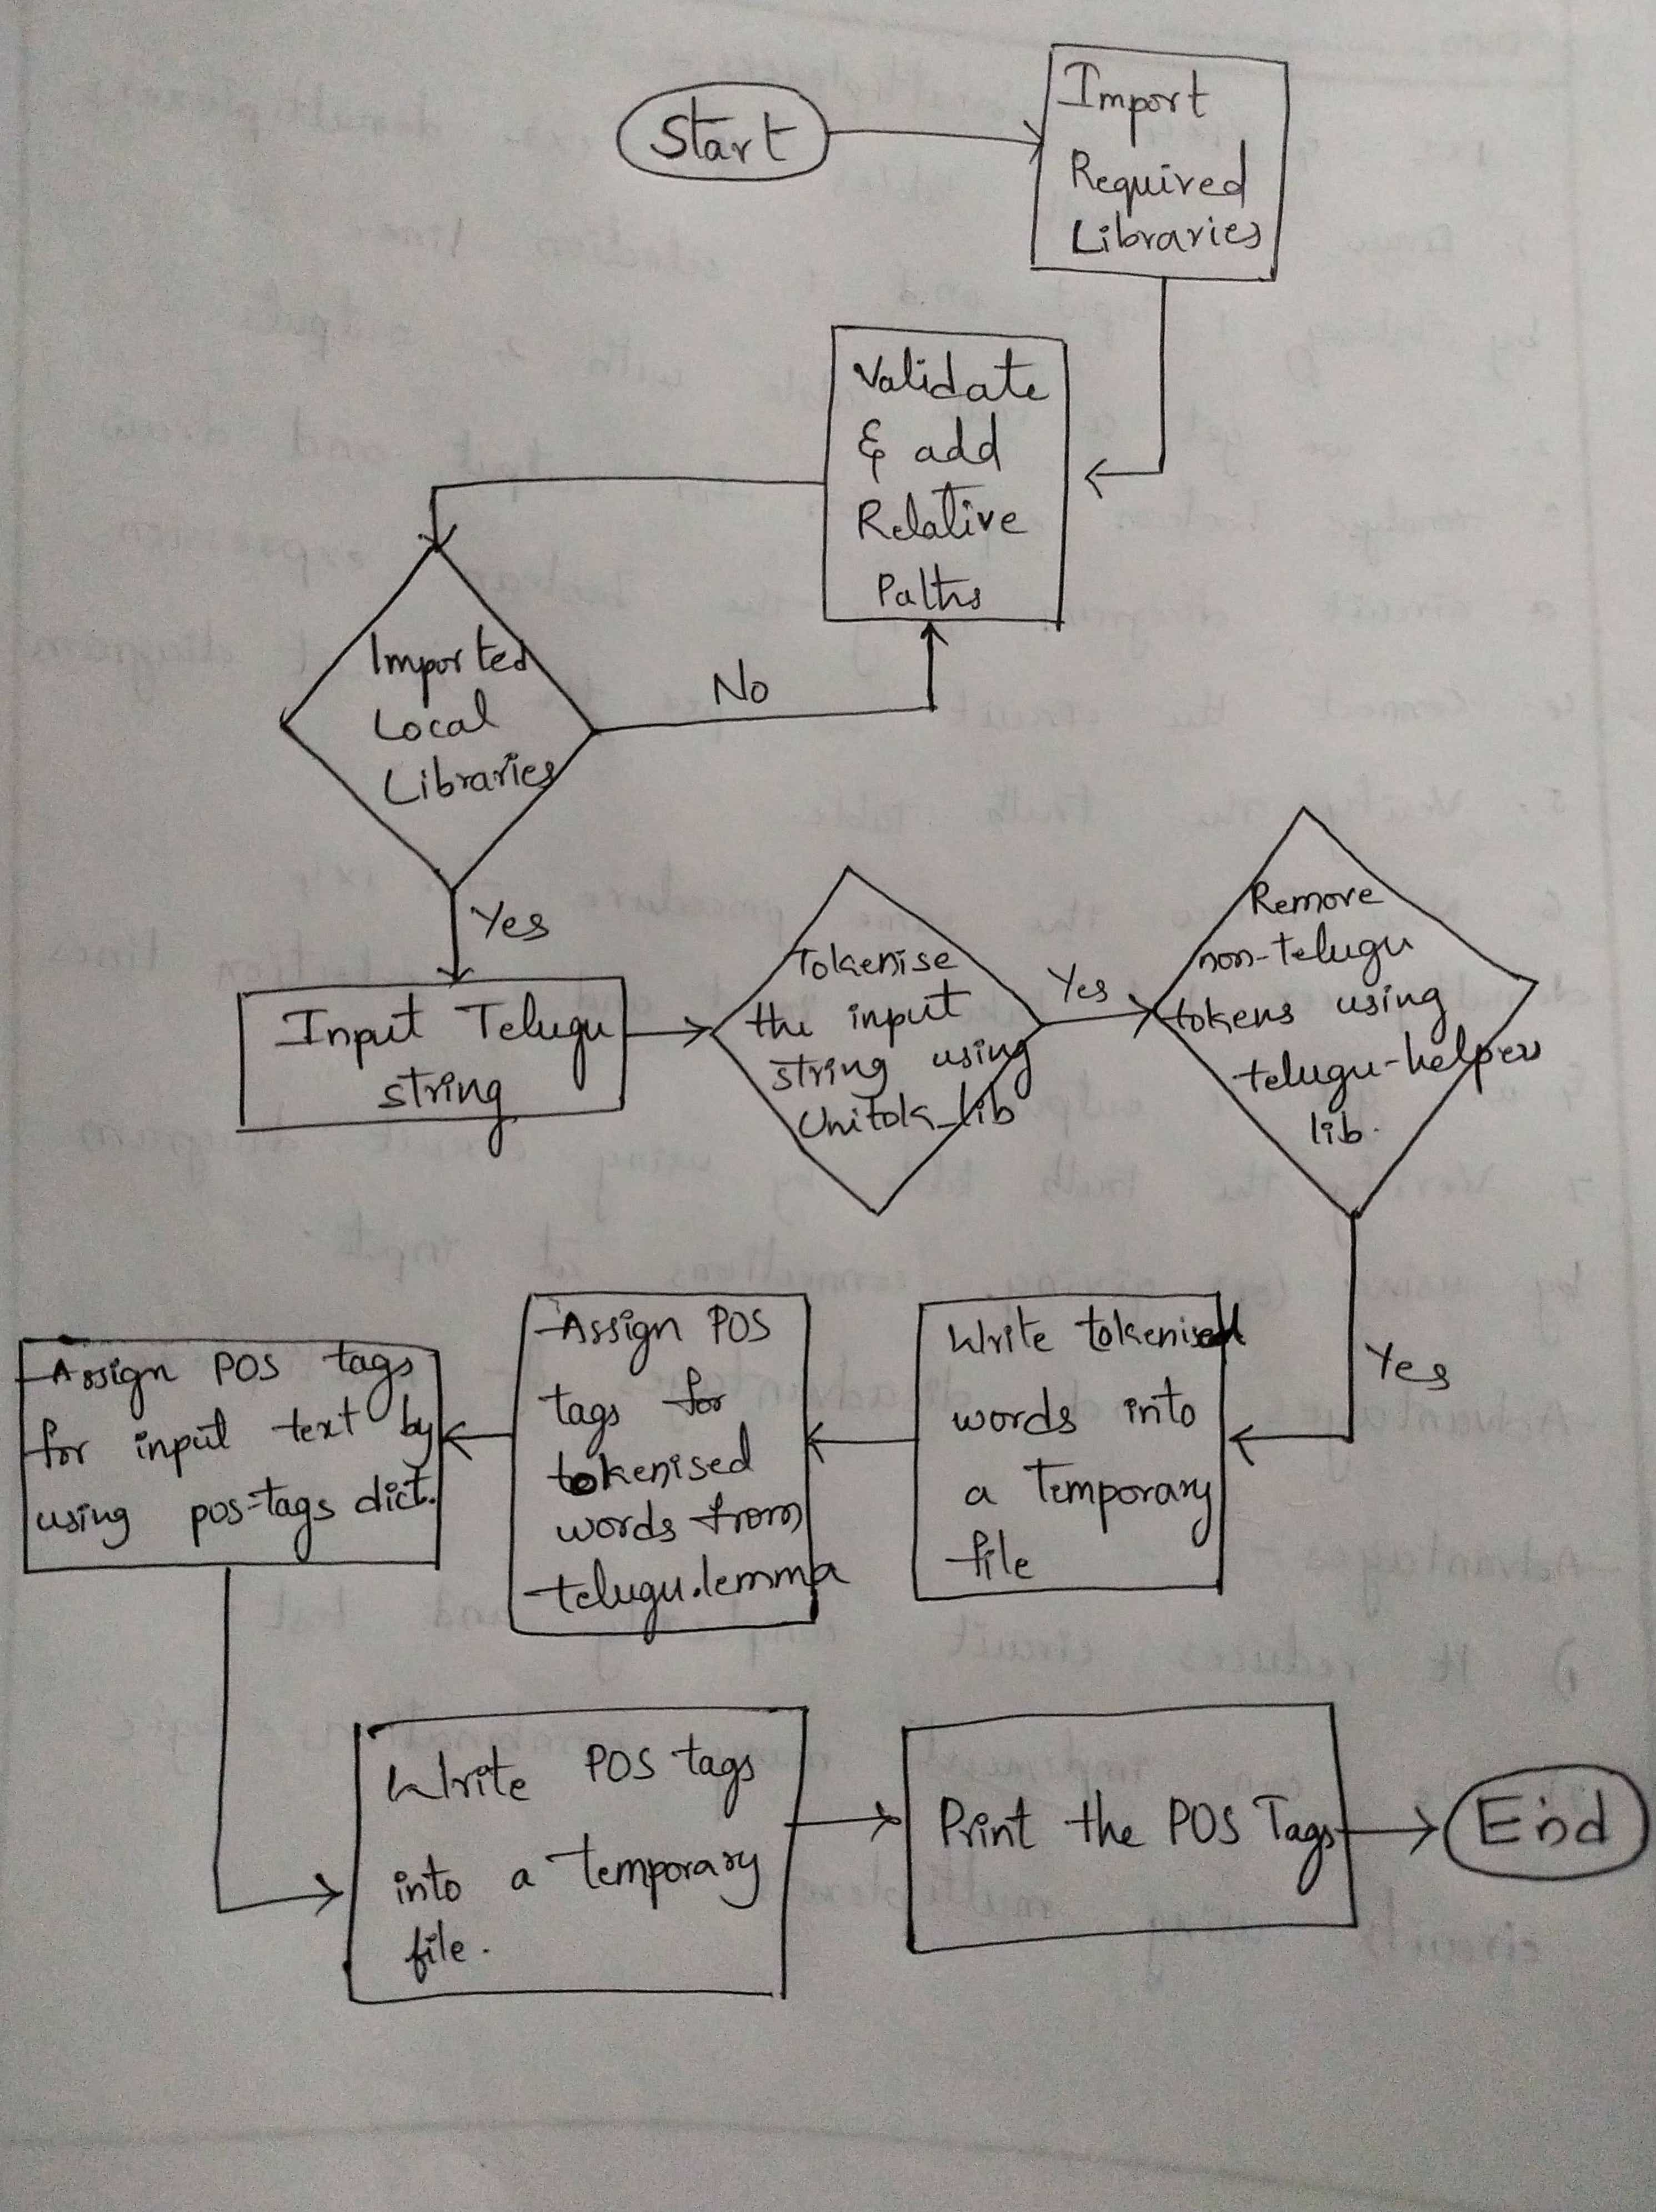 Start
Import
Required
Libraries
Validate
& add
Relative
Paths
Imported
Local
Libraries
No
Yes
Input Telugu
string
Tokenise
the input
string using
Unitok_lib
Yes
Remove
non-telugu
tokens using
telugu-helper
lib.
Yes
Write tokenised
words into
a temporary
file
Assign POS
tags for
tokenised
words from
telugu.lemma
Assign POS tags
for input text by
using pos-tags dict.
Write POS tags
into a temporary
file.
Print the POS Tags
End